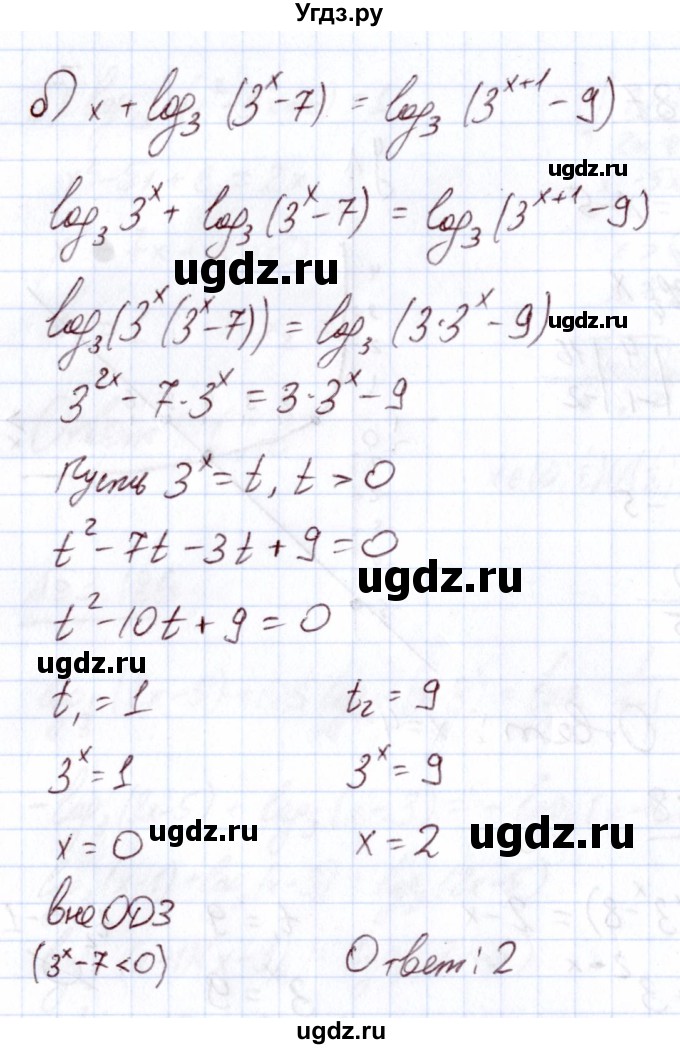 Угдз.ру
б) x + log₃ (3ˣ - 7) = log₃ (3ˣ⁺¹ - 9)
ugdz.ru
log₃ 3ˣ + log₃ (3ˣ - 7) = log₃ (3ˣ⁺¹ - 9)
ugdz.ru
log₃ (3ˣ (3ˣ - 7)) = log₃ (3·3ˣ - 9)
ugdz.ru
3²ˣ - 7·3ˣ = 3·3ˣ - 9
Пусть 3ˣ = t, t > 0
t² - 7t - 3t + 9 = 0
ugdz.ru
t² - 10t + 9 = 0
ugdz.ru
t₁ = 1 t₂ = 9
3ˣ = 1 3ˣ = 9
x = 0 ugdz.ru x = 2 ugdz.ru
вне ОДЗ
(3ˣ - 7 < 0) Ответ: 2
ugdz.ru